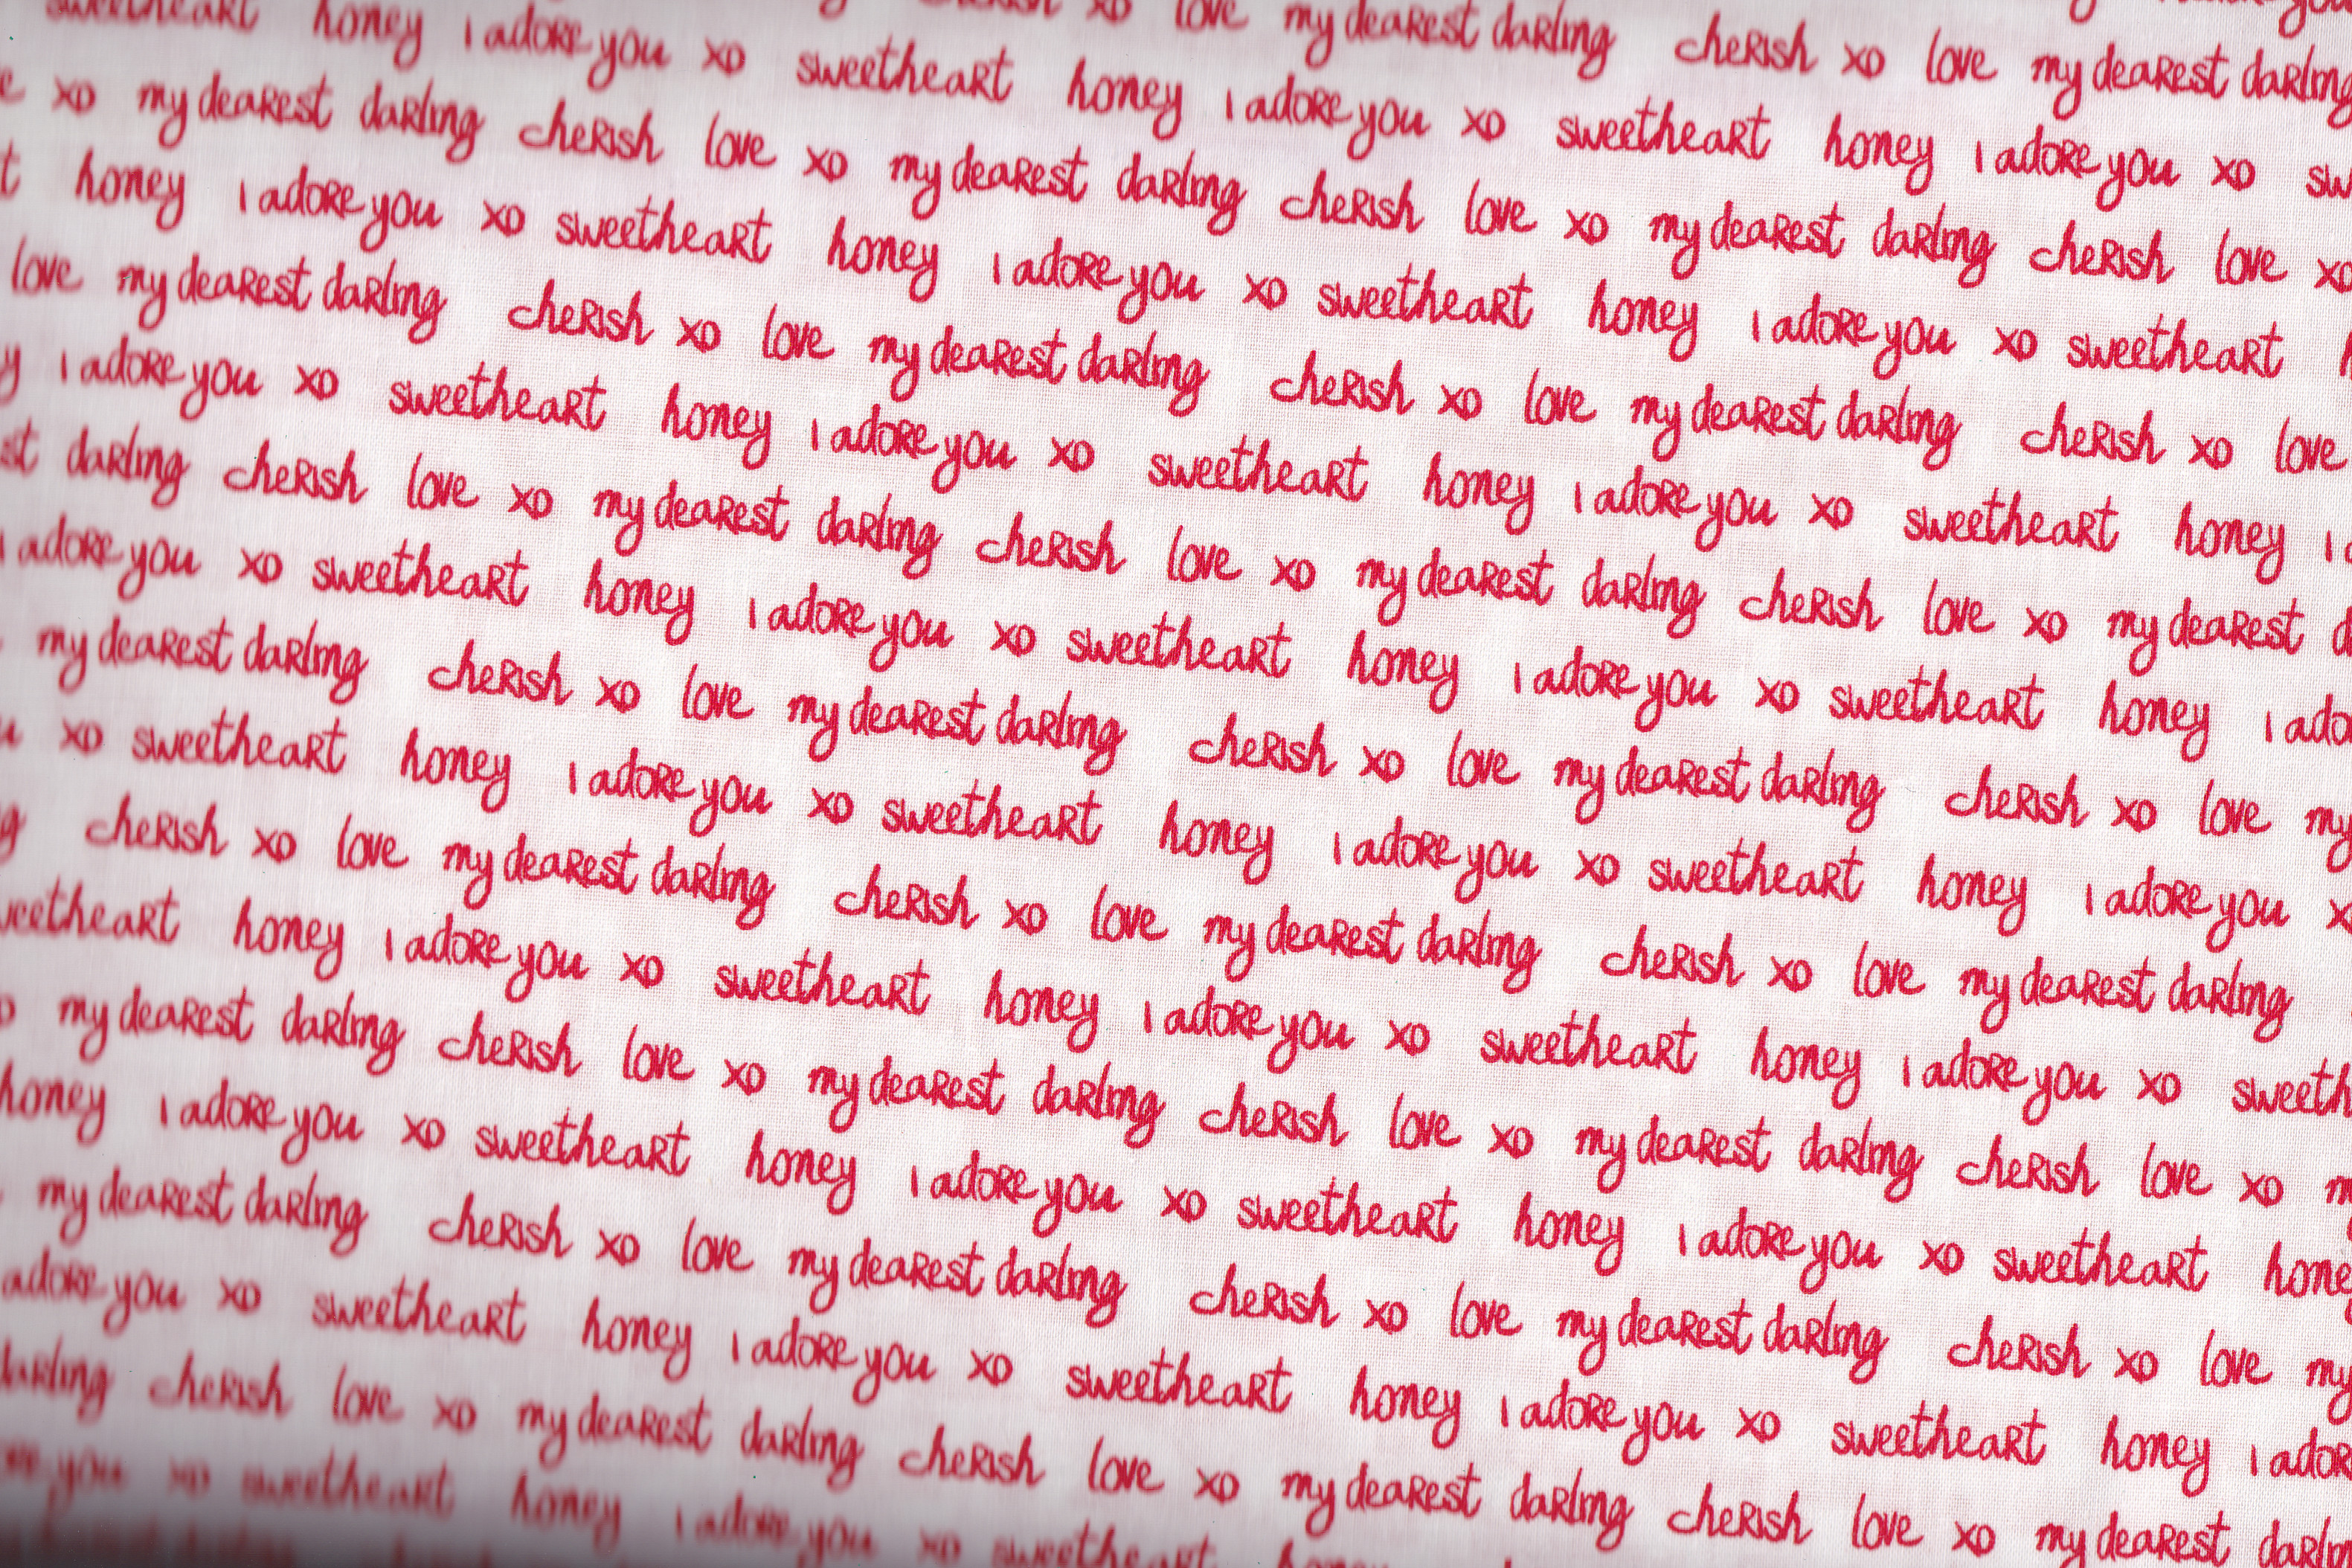 cherish xo love my dearest darling cherish xo love my dearest darling
sweetheart honey i adore you xo sweetheart honey i adore you xo sweetheart honey i adore you xo sw
xo my dearest darling cherish love xo my dearest darling cherish love xo my dearest darling cherish love xo
honey i adore you xo sweetheart honey i adore you xo sweetheart honey i adore you xo sweetheart
love my dearest darling cherish xo love my dearest darling cherish xo love my dearest darling cherish xo love
y i adore you xo sweetheart honey i adore you xo sweetheart honey i adore you xo sweetheart honey i
st darling cherish love xo my dearest darling cherish love xo my dearest darling cherish love xo my dearest d
i adore you xo sweetheart honey i adore you xo sweetheart honey i adore you xo sweetheart honey i ado
my dearest darling cherish xo love my dearest darling cherish xo love my dearest darling cherish xo love my
xo sweetheart honey i adore you xo sweetheart honey i adore you xo sweetheart honey i adore you x
g cherish xo love my dearest darling cherish xo love my dearest darling cherish xo love my dearest darling
weetheart honey i adore you xo sweetheart honey i adore you xo sweetheart honey i adore you xo sweeth
my dearest darling cherish love xo my dearest darling cherish love xo my dearest darling cherish love xo m
honey i adore you xo sweetheart honey i adore you xo sweetheart honey i adore you xo sweetheart hone
my dearest darling cherish xo love my dearest darling cherish xo love my dearest darling cherish xo love my
adore you xo sweetheart honey i adore you xo sweetheart honey i adore you xo sweetheart honey i ador
darling cherish love xo my dearest darling cherish love xo my dearest darling cherish love xo my dearest darlin
you xo sweetheart honey i adore you xo sweetheart